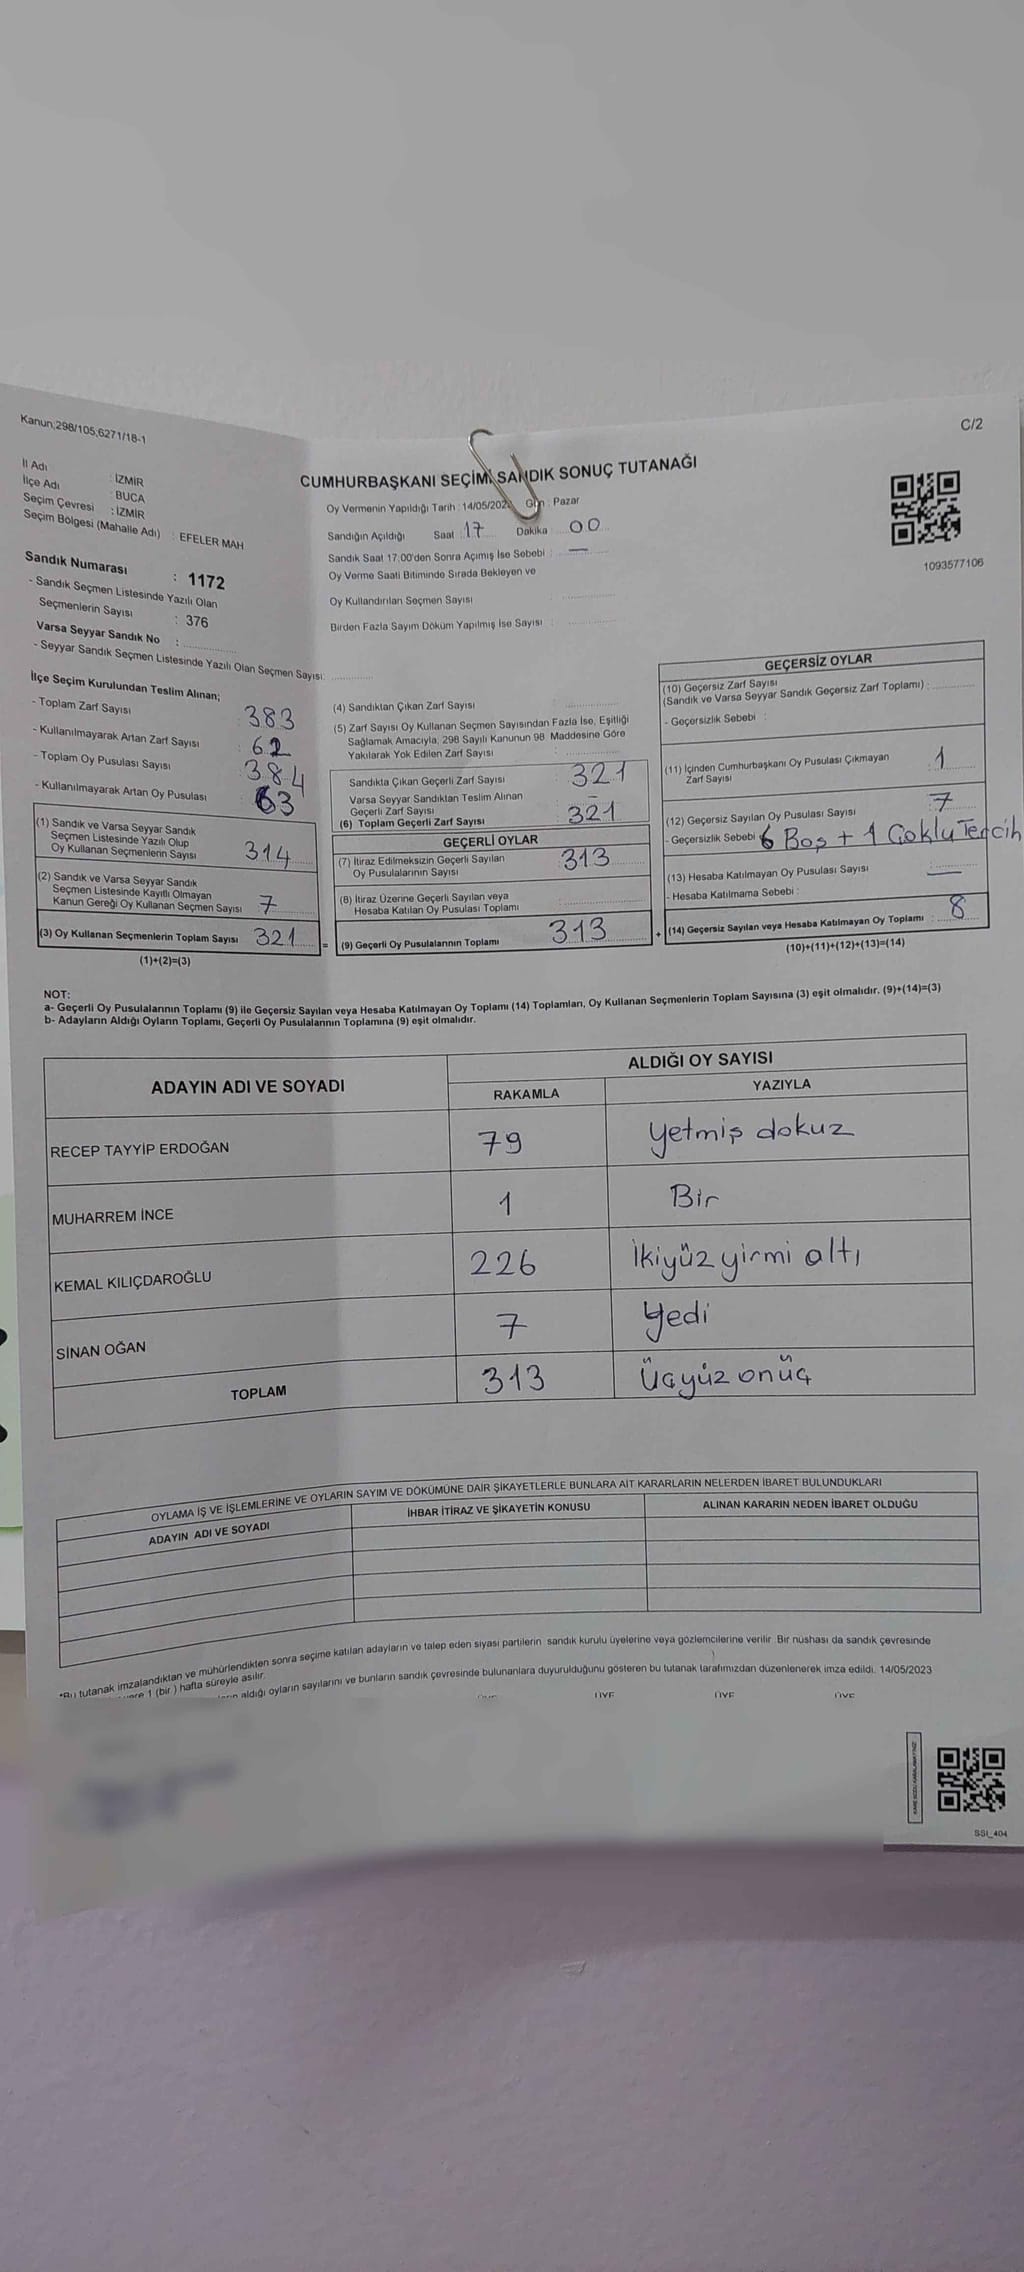 Kanun;298/105;6271/18-1
C/2
İl Adı : İZMİR
İlçe Adı : BUCA
Seçim Çevresi : İZMİR
Seçim Bölgesi (Mahalle Adı) : EFELER MAH
Sandık Numarası : 1172
- Sandık Seçmen Listesinde Yazılı Olan
Seçmenlerin Sayısı : 376
Varsa Seyyar Sandık No :
- Seyyar Sandık Seçmen Listesinde Yazılı Olan Seçmen Sayısı:
CUMHURBAŞKANI SEÇİMİ SANDIK SONUÇ TUTANAĞI
Oy Vermenin Yapıldığı Tarih : 14/05/2023 Gün : Pazar
Sandığın Açıldığı Saat 17 Dakika 00
Sandık Saat 17:00'den Sonra Açımış İse Sebebi : —
Oy Verme Saati Bitiminde Sırada Bekleyen ve
Oy Kullandırılan Seçmen Sayısı :
Birden Fazla Sayım Döküm Yapılmış İse Sayısı :
1093577106
İlçe Seçim Kurulundan Teslim Alınan;
- Toplam Zarf Sayısı : 383
- Kullanılmayarak Artan Zarf Sayısı : 62
- Toplam Oy Pusulası Sayısı : 384
- Kullanılmayarak Artan Oy Pusulası : 63
(1) Sandık ve Varsa Seyyar Sandık
Seçmen Listesinde Yazılı Olup
Oy Kullanan Seçmenlerin Sayısı 314
(2) Sandık ve Varsa Seyyar Sandık
Seçmen Listesinde Kayıtlı Olmayan
Kanun Gereği Oy Kullanan Seçmen Sayısı 7
(3) Oy Kullanan Seçmenlerin Toplam Sayısı 321 =
(1)+(2)=(3)
(4) Sandıktan Çıkan Zarf Sayısı :
(5) Zarf Sayısı Oy Kullanan Seçmen Sayısından Fazla İse, Eşitliği
Sağlamak Amacıyla, 298 Sayılı Kanunun 98. Maddesine Göre
Yakılarak Yok Edilen Zarf Sayısı :
Sandıkta Çıkan Geçerli Zarf Sayısı : 321
Varsa Seyyar Sandıktan Teslim Alınan
Geçerli Zarf Sayısı : —
(6) Toplam Geçerli Zarf Sayısı : 321
GEÇERLİ OYLAR
(7) İtiraz Edilmeksizin Geçerli Sayılan
Oy Pusulalarının Sayısı : 313
(8) İtiraz Üzerine Geçerli Sayılan veya
Hesaba Katılan Oy Pusulası Toplamı :
(9) Geçerli Oy Pusulalarının Toplamı 313 +
GEÇERSİZ OYLAR
(10) Geçersiz Zarf Sayısı
(Sandık ve Varsa Seyyar Sandık Geçersiz Zarf Toplamı) :
- Geçersizlik Sebebi :
(11) İçinden Cumhurbaşkanı Oy Pusulası Çıkmayan
Zarf Sayısı : 1
(12) Geçersiz Sayılan Oy Pusulası Sayısı : 7
- Geçersizlik Sebebi 6 Boş + 1 Çoklu Tercih
(13) Hesaba Katılmayan Oy Pusulası Sayısı : —
- Hesaba Katılmama Sebebi :
(14) Geçersiz Sayılan veya Hesaba Katılmayan Oy Toplamı : 8
(10)+(11)+(12)+(13)=(14)
NOT:
a- Geçerli Oy Pusulalarının Toplamı (9) ile Geçersiz Sayılan veya Hesaba Katılmayan Oy Toplamı (14) Toplamları, Oy Kullanan Seçmenlerin Toplam Sayısına (3) eşit olmalıdır. (9)+(14)=(3)
b- Adayların Aldığı Oyların Toplamı, Geçerli Oy Pusulalarının Toplamına (9) eşit olmalıdır.
ADAYIN ADI VE SOYADI ALDIĞI OY SAYISI
RAKAMLA YAZIYLA
RECEP TAYYİP ERDOĞAN 79 Yetmiş dokuz
MUHARREM İNCE 1 Bir
KEMAL KILIÇDAROĞLU 226 İkiyüz yirmi altı
SİNAN OĞAN 7 Yedi
TOPLAM 313 Üçyüz onüç
OYLAMA İŞ VE İŞLEMLERİNE VE OYLARIN SAYIM VE DÖKÜMÜNE DAİR ŞİKAYETLERLE BUNLARA AİT KARARLARIN NELERDEN İBARET BULUNDUKLARI
ADAYIN ADI VE SOYADI İHBAR İTİRAZ VE ŞİKAYETİN KONUSU ALINAN KARARIN NEDEN İBARET OLDUĞU
*Bu tutanak imzalandıktan ve mühürlendikten sonra seçime katılan adayların ve talep eden siyasi partilerin sandık kurulu üyelerine veya gözlemcilerine verilir. Bir nüshası da sandık çevresinde
1 (bir ) hafta süreyle asılır.
aldığı oyların sayılarını ve bunların sandık çevresinde bulunanlara duyurulduğunu gösteren bu tutanak tarafımızdan düzenlenerek imza edildi. 14/05/2023
ÜYE ÜYE ÜYE
SSI_404